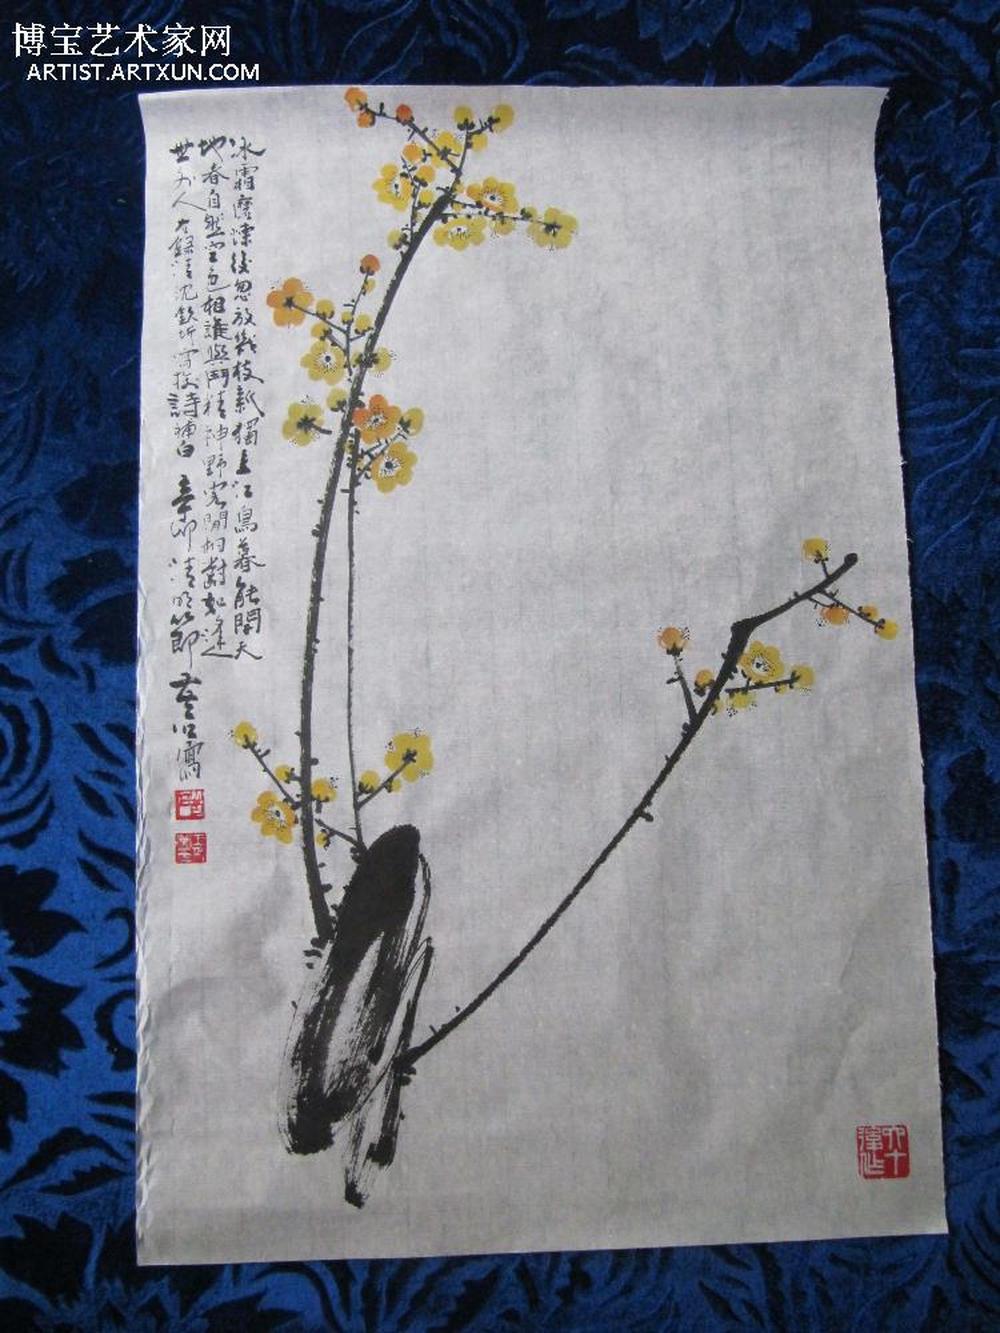 博宝艺术家网
ARTIST.ARTXUN.COM
冰霜磨炼后忽放几枝新独立江鳥暮能開天
地春自然空色相誰與鬥精神野客閒相對如逢
世外人 右錄清沈欽圻寫梅詩補白 辛卯清明節 寫
六十後作